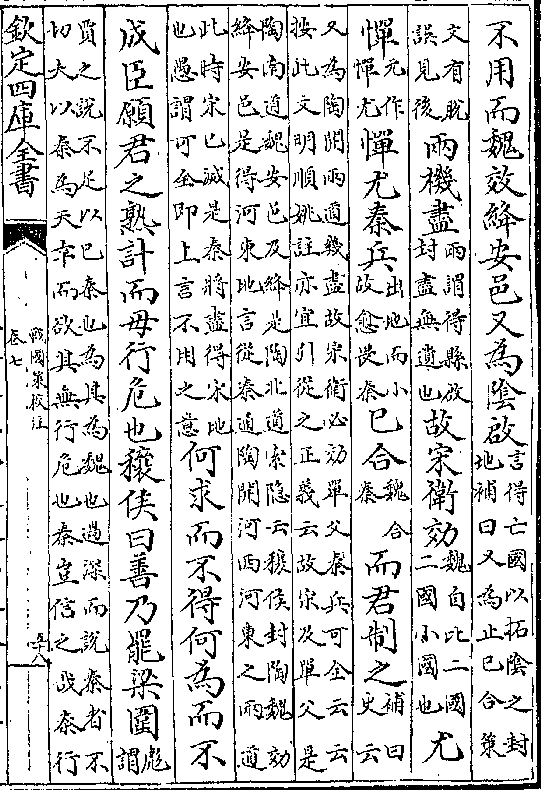 不用而魏效絳安邑又為陰啟言得亡國以拓陰之封地補曰又為止已合策
文有脫誤見後兩機盡兩謂得縣啟封盡無遺也故宋衛効魏自比二國二國小國也尤
憚元作憚尤憚尤秦兵出地而小故愈畏秦已合魏合秦而君制之補曰史云
又為陶開兩道幾盡故宋衛必効單父秦兵可全云云
按此文明順姚註亦宜引從之正義云故宋及單父是
陶南道魏安邑及絳是陶北道索隐云穰侯封陶魏効
絳安邑是得河東地言從秦通陶開河西河東之兩道
此時宋已滅是秦將盡得宋地也愚謂可全即上言不用之意何求而不得何為而不
成臣願君之熟計而毋行危也穰侯曰善乃罷梁圍彪謂
賈之說不足以已秦也為其為魏也過深而說秦者不
切夫以秦為天幸而欲其無行危也秦豈信之哉秦行
欽定四庫全書
戰國策校注
卷七